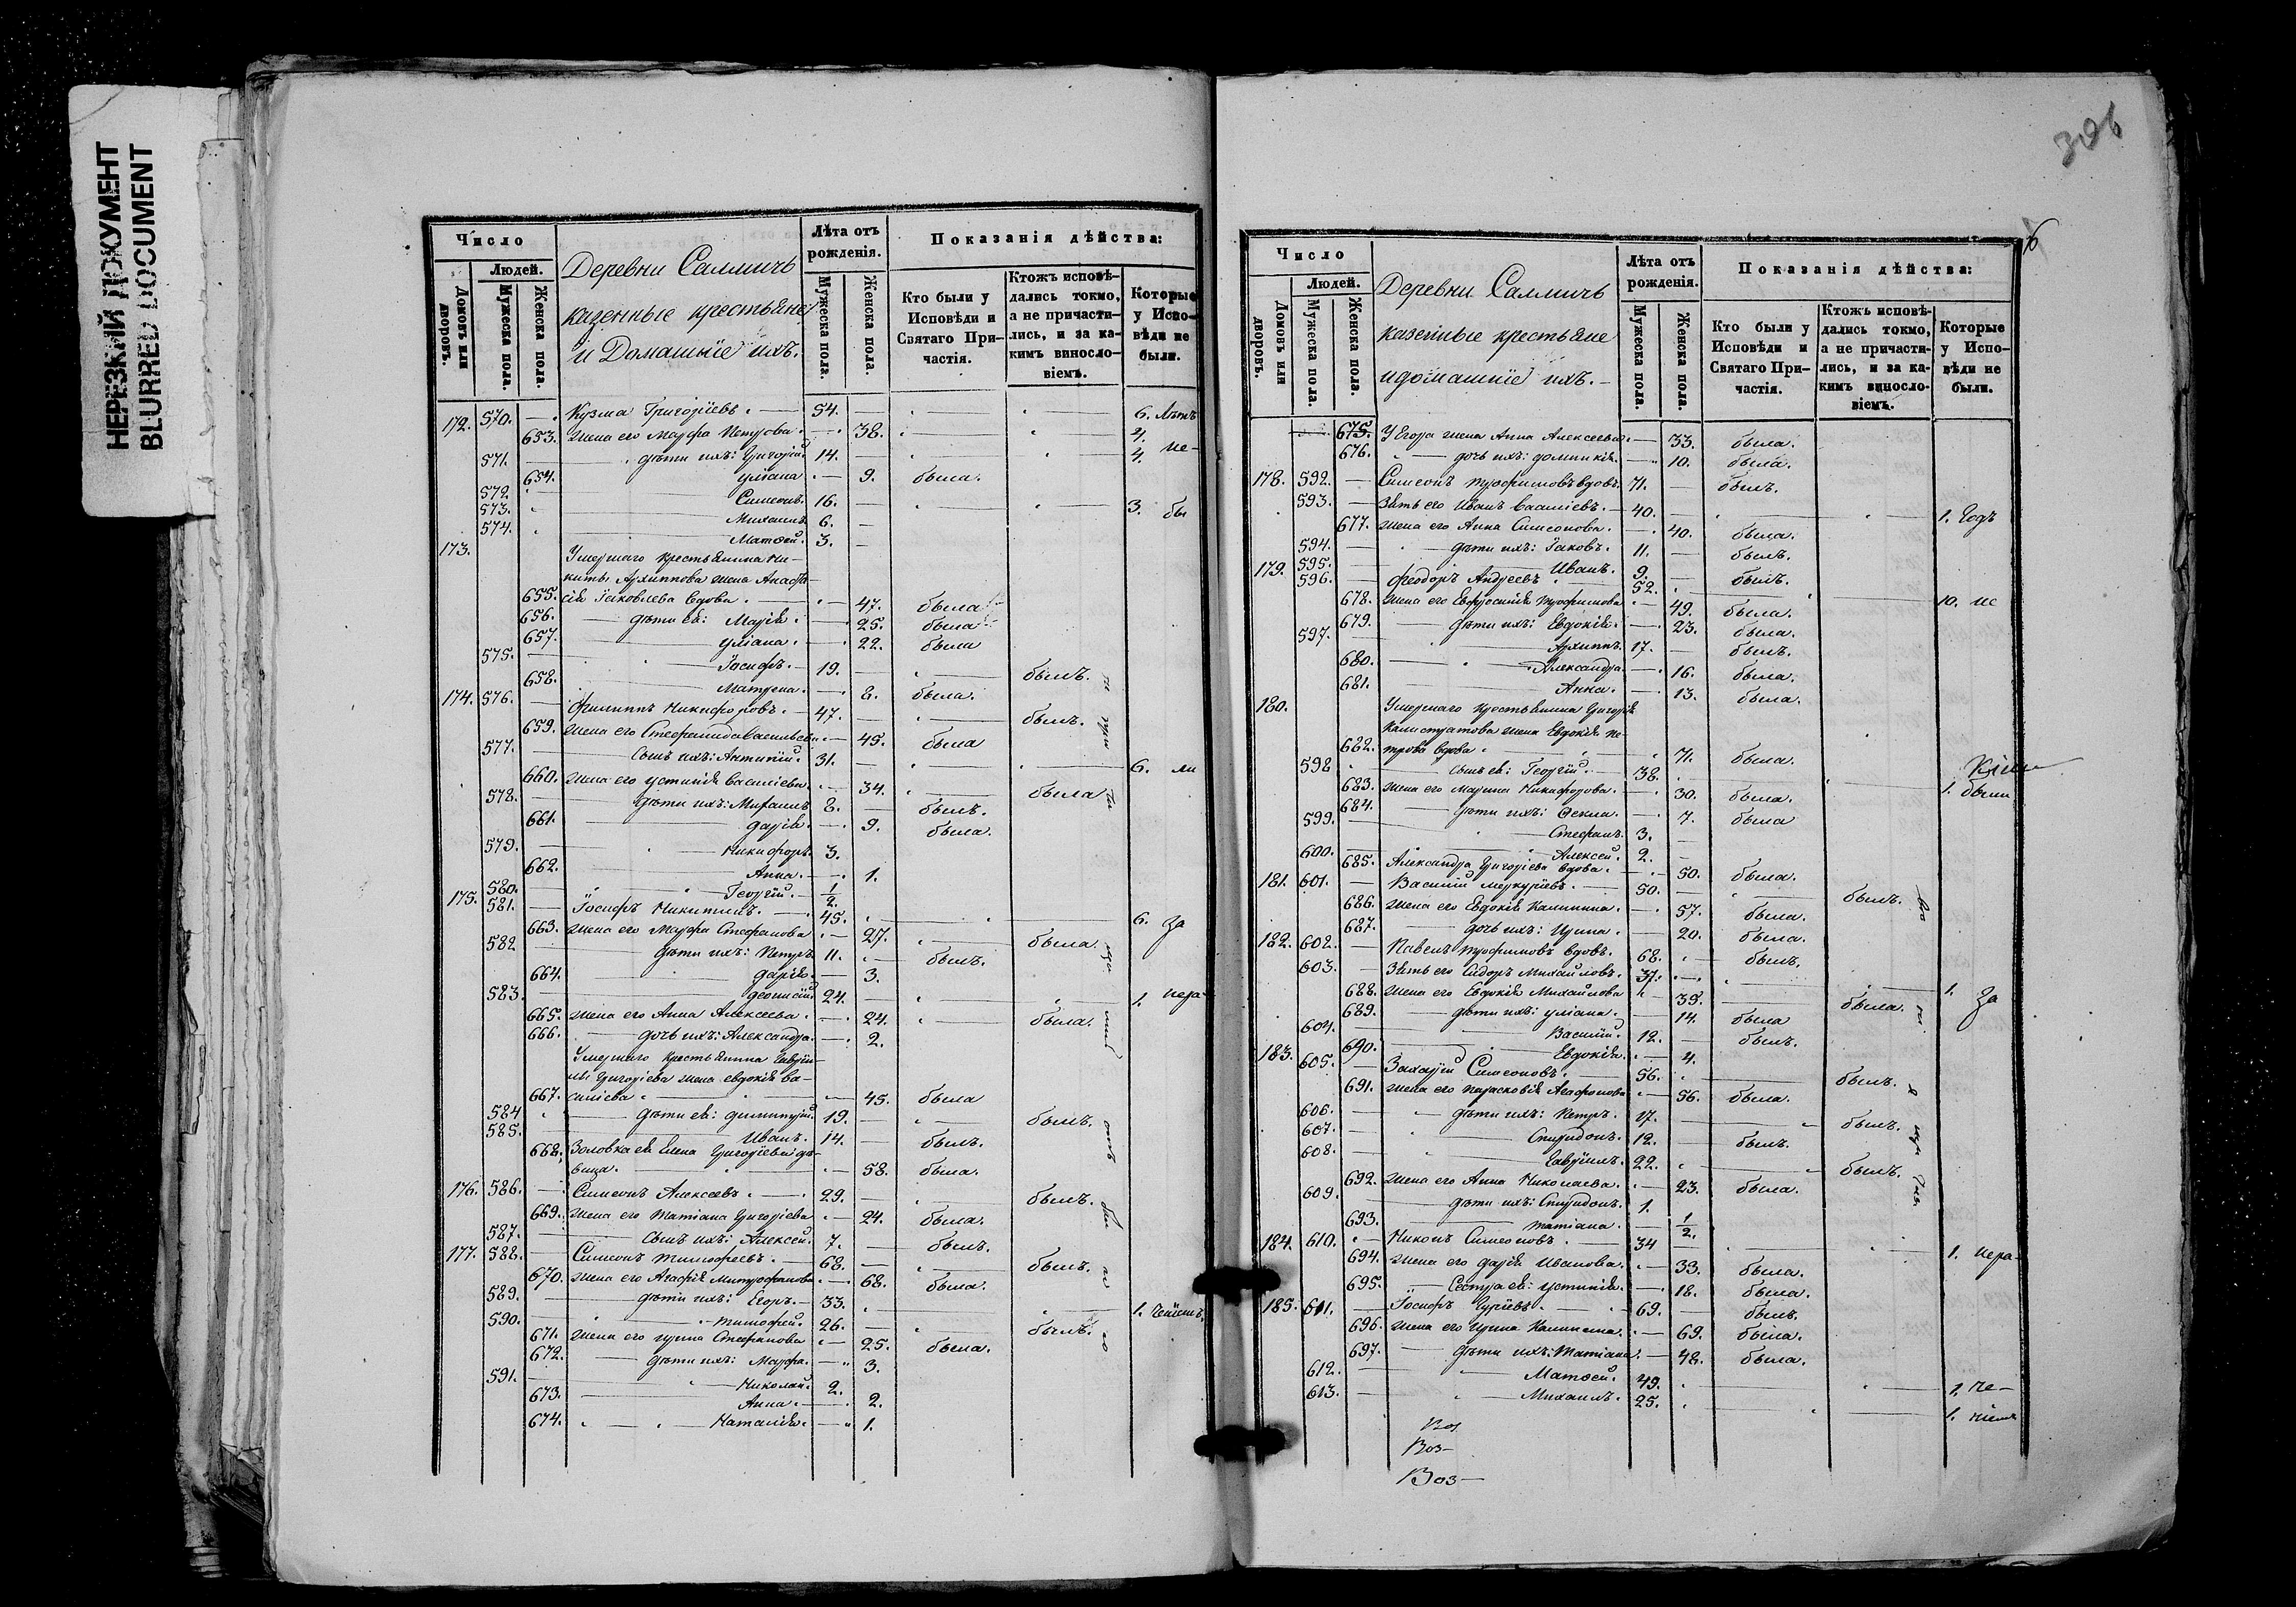 НЕРЕЗКИЙ ДОКУМЕНТ
BLURRED DOCUMENT
Число
Людей.
Домовъ или дворовъ.
Мужеска пола.
Женска пола.
Деревни Саллмичь
казенные крестьяне
и Домашніе ихъ.
Лѣта отъ рожденія.
Мужеска пола.
Женска пола.
Показанія дѣйства:
Кто были у Исповѣди и Святаго Причастія.
Ктожъ исповѣдались токмо, а не причастились, и за какимъ винословіемъ.
Которые у Исповѣди не были.
172. 570. Кузма Григоріевъ. 54. 6. Лѣтъ
653. жена его Марѳа Петрова. 38. 4.
571. дѣти ихъ: Григорій. 14. 4. не-
654. Уліана 9. была.
572. Симеонъ. 16. 3. бы
573. Михаилъ. 6.
574. Матѳей. 3.
173. Умершаго крестьянина Ни-
киты Архиппова жена Анаста-
655. сія Іаковлева вдова. 47. была
656. дѣти ея: Марія. 25. была
657. Уліана. 22. была
575. Іосифъ. 19. былъ.
658. Матрона. 8. была.
174. 576. Филиппъ Никифоровъ. 47. былъ.
659. жена его Стефанида Васильева 45. была
577. Сынъ ихъ: Антипій. 31. 6. ли
660. жена его Устинія Василіева. 34. была
578. дѣти ихъ: Михаилъ 8. былъ.
661. Дарія. 9. была.
579. Никифоръ. 3.
662. Анна. 1.
580. Георгій. 1/2.
175. 581. Іосифъ Никитинъ. 45. 6. За
663. жена его Марѳа Стефанова 27. была
582. дѣти ихъ: Петръ 11. былъ.
664. Дарія. 3.
583. Деонисій 24. 1. нера
665. жена его Анна Алексеева. 24. была.
666. дочь ихъ: Александра. 2.
Умершаго крестьянина Гаврії-
ла Григоріева жена Евдокія Ва-
667. силіева 45. была
584. дѣти ея: Димитрій. 19. былъ.
585. Иванъ. 14. былъ.
668. Золовка ея Елена Григоріева дѣ-
вица. 58. была.
176. 586. Симеонъ Алексеевъ. 29. былъ.
669. жена его Татіана Григоріева 24. была.
587. Сынъ ихъ: Алексей. 7. былъ.
177. 588. Симеонъ Тимофеевъ. 68. былъ.
670. жена его Агафія Митрофанова 68. была.
589. дѣти ихъ: Егоръ. 33. 1. ченіемъ
590. Тимофей. 26. былъ.
671. жена его Ирина Стефанова 25. была.
672. дѣти ихъ: Марѳа. 3.
591. Николай. 2.
673. Анна. 2.
674. Наталія. 1.
6
Число
Людей.
Домовъ или дворовъ.
Мужеска пола.
Женска пола.
Деревни Саллмичь
казенные крестьяне
и домашніе ихъ.
Лѣта отъ рожденія.
Мужеска пола.
Женска пола.
Показанія дѣйства:
Кто были у Исповѣди и Святаго Причастія.
Ктожъ исповѣдались токмо, а не причастились, и за какимъ винословіемъ.
Которые у Исповѣди не были.
675. У Егора жена Анна Алексеева. 33. была.
676. дочь ихъ: Домникія. 10. была.
178. 592. Симеонъ Трофимовъ вдовъ. 71. былъ.
593. Зять его Иванъ Василіевъ. 40. 1. Годъ
677. жена его Анна Симеонова. 40. была.
594. дѣти ихъ: Іаковъ. 11. былъ.
595. Иванъ. 9. былъ.
179. 596. Феодоръ Андреевъ 52. 10. не
678. жена его Евфросинія Трофимова 49. была.
679. дѣти ихъ: Евдокія. 23. была.
597. Архиппъ. 17. былъ.
680. Александра. 16. была.
681. Анна. 13. была.
180. Умершаго крестьянина Григорія
Калистратова жена Евдокія Пе-
682. трова вдова 71. была.
598. сынъ ея: Георгій. 38. 1. были
683. жена его Марина Никифорова. 30. была.
684. дѣти ихъ: Ѳекла. 7. была
599. Стефанъ. 3.
600. Алексей. 2.
685. Александра Григоріева вдова. 50. была.
181. 601. Василій Меркуріевъ. 50. былъ.
686. жена его Евдокія Калинина. 57. была.
687. дочь ихъ: Ирина. 20. была.
182. 602. Павелъ Трофимовъ вдовъ. 68. былъ.
603. Зять его Сидоръ Михайловъ. 37. 1. За
688. жена его Евдокія Михайлова 35. была.
689. дѣти ихъ: Уліана. 14. была
604. Василій. 12. былъ.
690. Евдокія. 4.
183. 605. Захарій Симеоновъ. 56. былъ.
691. жена его Парасковія Агафонова 56. была.
606. дѣти ихъ: Петръ. 17. былъ.
607. Спиридонъ. 12. былъ.
608. Гавріилъ. 22. былъ.
692. жена его Анна Николаева. 23. была.
609. дѣти ихъ: Спиридонъ. 1.
693. Татіана. 1/2.
184. 610. Никонъ Симеоновъ. 34 1. нера-
694. жена его Дарія Иванова. 33. была.
695. Сестра ея: Устинія. 18. была.
185. 611. Іосифъ Гуріевъ. 69. былъ.
696. жена его Ирина Калинина. 69. была.
697. дѣти ихъ: Татіана. 48. была.
612. Матѳей. 49. 1. че-
613. Михаилъ. 25. 1. ніемъ
Воз
Воз-
Воз-